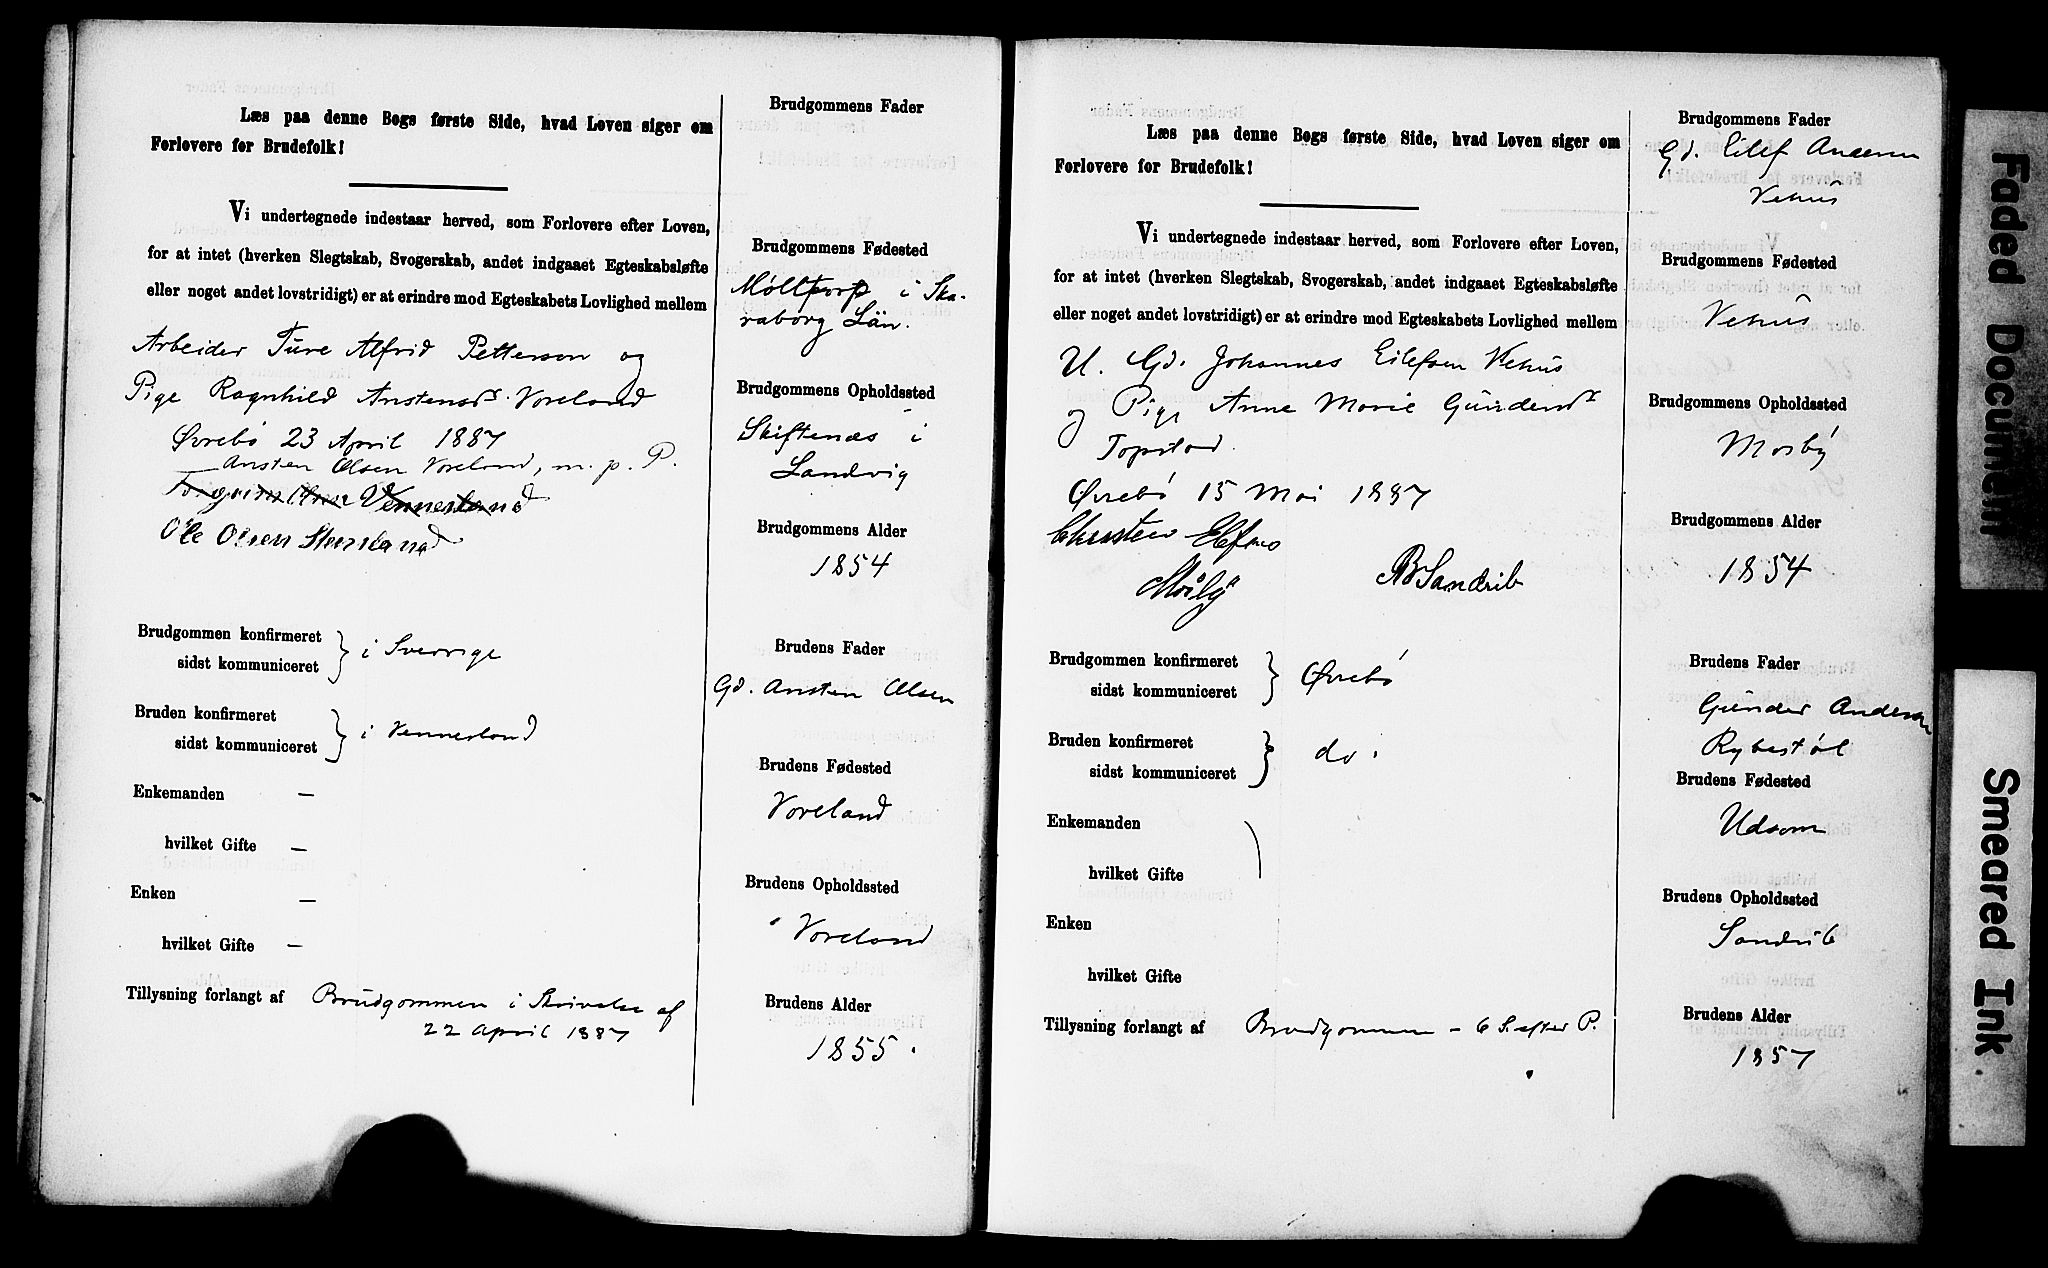 Læs paa denne Bogs første Side, hvad Loven siger om
Forlovere for Brudefolk!
Vi undertegnede indestaar herved, som Forlovere efter Loven,
for at intet (hverken Slegtskab, Svogerskab, andet indgaaet Egteskabsløfte
eller noget andet lovstridigt) er at erindre mod Egteskabets Lovlighed mellem
Arbeider Ture Alfrid Petterson og
Pige Ragnhild Anstensdr. Voreland
Øvrebø 23 April 1887
Ansten Olsen Voreland, m. p. P.
Vennesland
Ole Olsen
Brudgommen konfirmeret
sidst kommuniceret } i Sverrige
Bruden konfirmeret
sidst kommuniceret } i Vennesland
Enkemanden —
hvilket Gifte —
Enken —
hvilket Gifte —
Tillysning forlangt af Brudgommen i Skrivelse af
22 April 1887
Brudgommens Fader
Brudgommens Fødested
Mølltorp i Ska-
raborg Län.
Brudgommens Opholdssted
Skiftenæs i
Landvig
Brudgommens Alder
1854
Brudens Fader
Gd. Ansten Olsen
Brudens Fødested
Voreland
Brudens Opholdssted
Voreland
Brudens Alder
1855.
Læs paa denne Bogs første Side, hvad Loven siger om
Forlovere for Brudefolk!
Vi undertegnede indestaar herved, som Forlovere efter Loven,
for at intet (hverken Slegtskab, Svogerskab, andet indgaaet Egteskabsløfte
eller noget andet lovstridigt) er at erindre mod Egteskabets Lovlighed mellem
U. Gd. Johannes Eilefsen Vehus
og Pige Anne Marie Gundersdr
Topstad.
Øvrebø 15 Mai 1887
Sandrib
Brudgommen konfirmeret
sidst kommuniceret } Øvrebø
Bruden konfirmeret
sidst kommuniceret } do.
Enkemanden
hvilket Gifte
Enken
hvilket Gifte
Tillysning forlangt af Brudgommen - 6 S. efter P.
Brudgommens Fader
Gd. Eilef Andersen
Vehus
Brudgommens Fødested
Vehus
Brudgommens Opholdssted
Mosby
Brudgommens Alder
1854
Brudens Fader
Gunder Andersen
Rybestøl
Brudens Fødested
Udsom
Brudens Opholdssted
Sandrib
Brudens Alder
1857
Faded Document
Smeared Ink